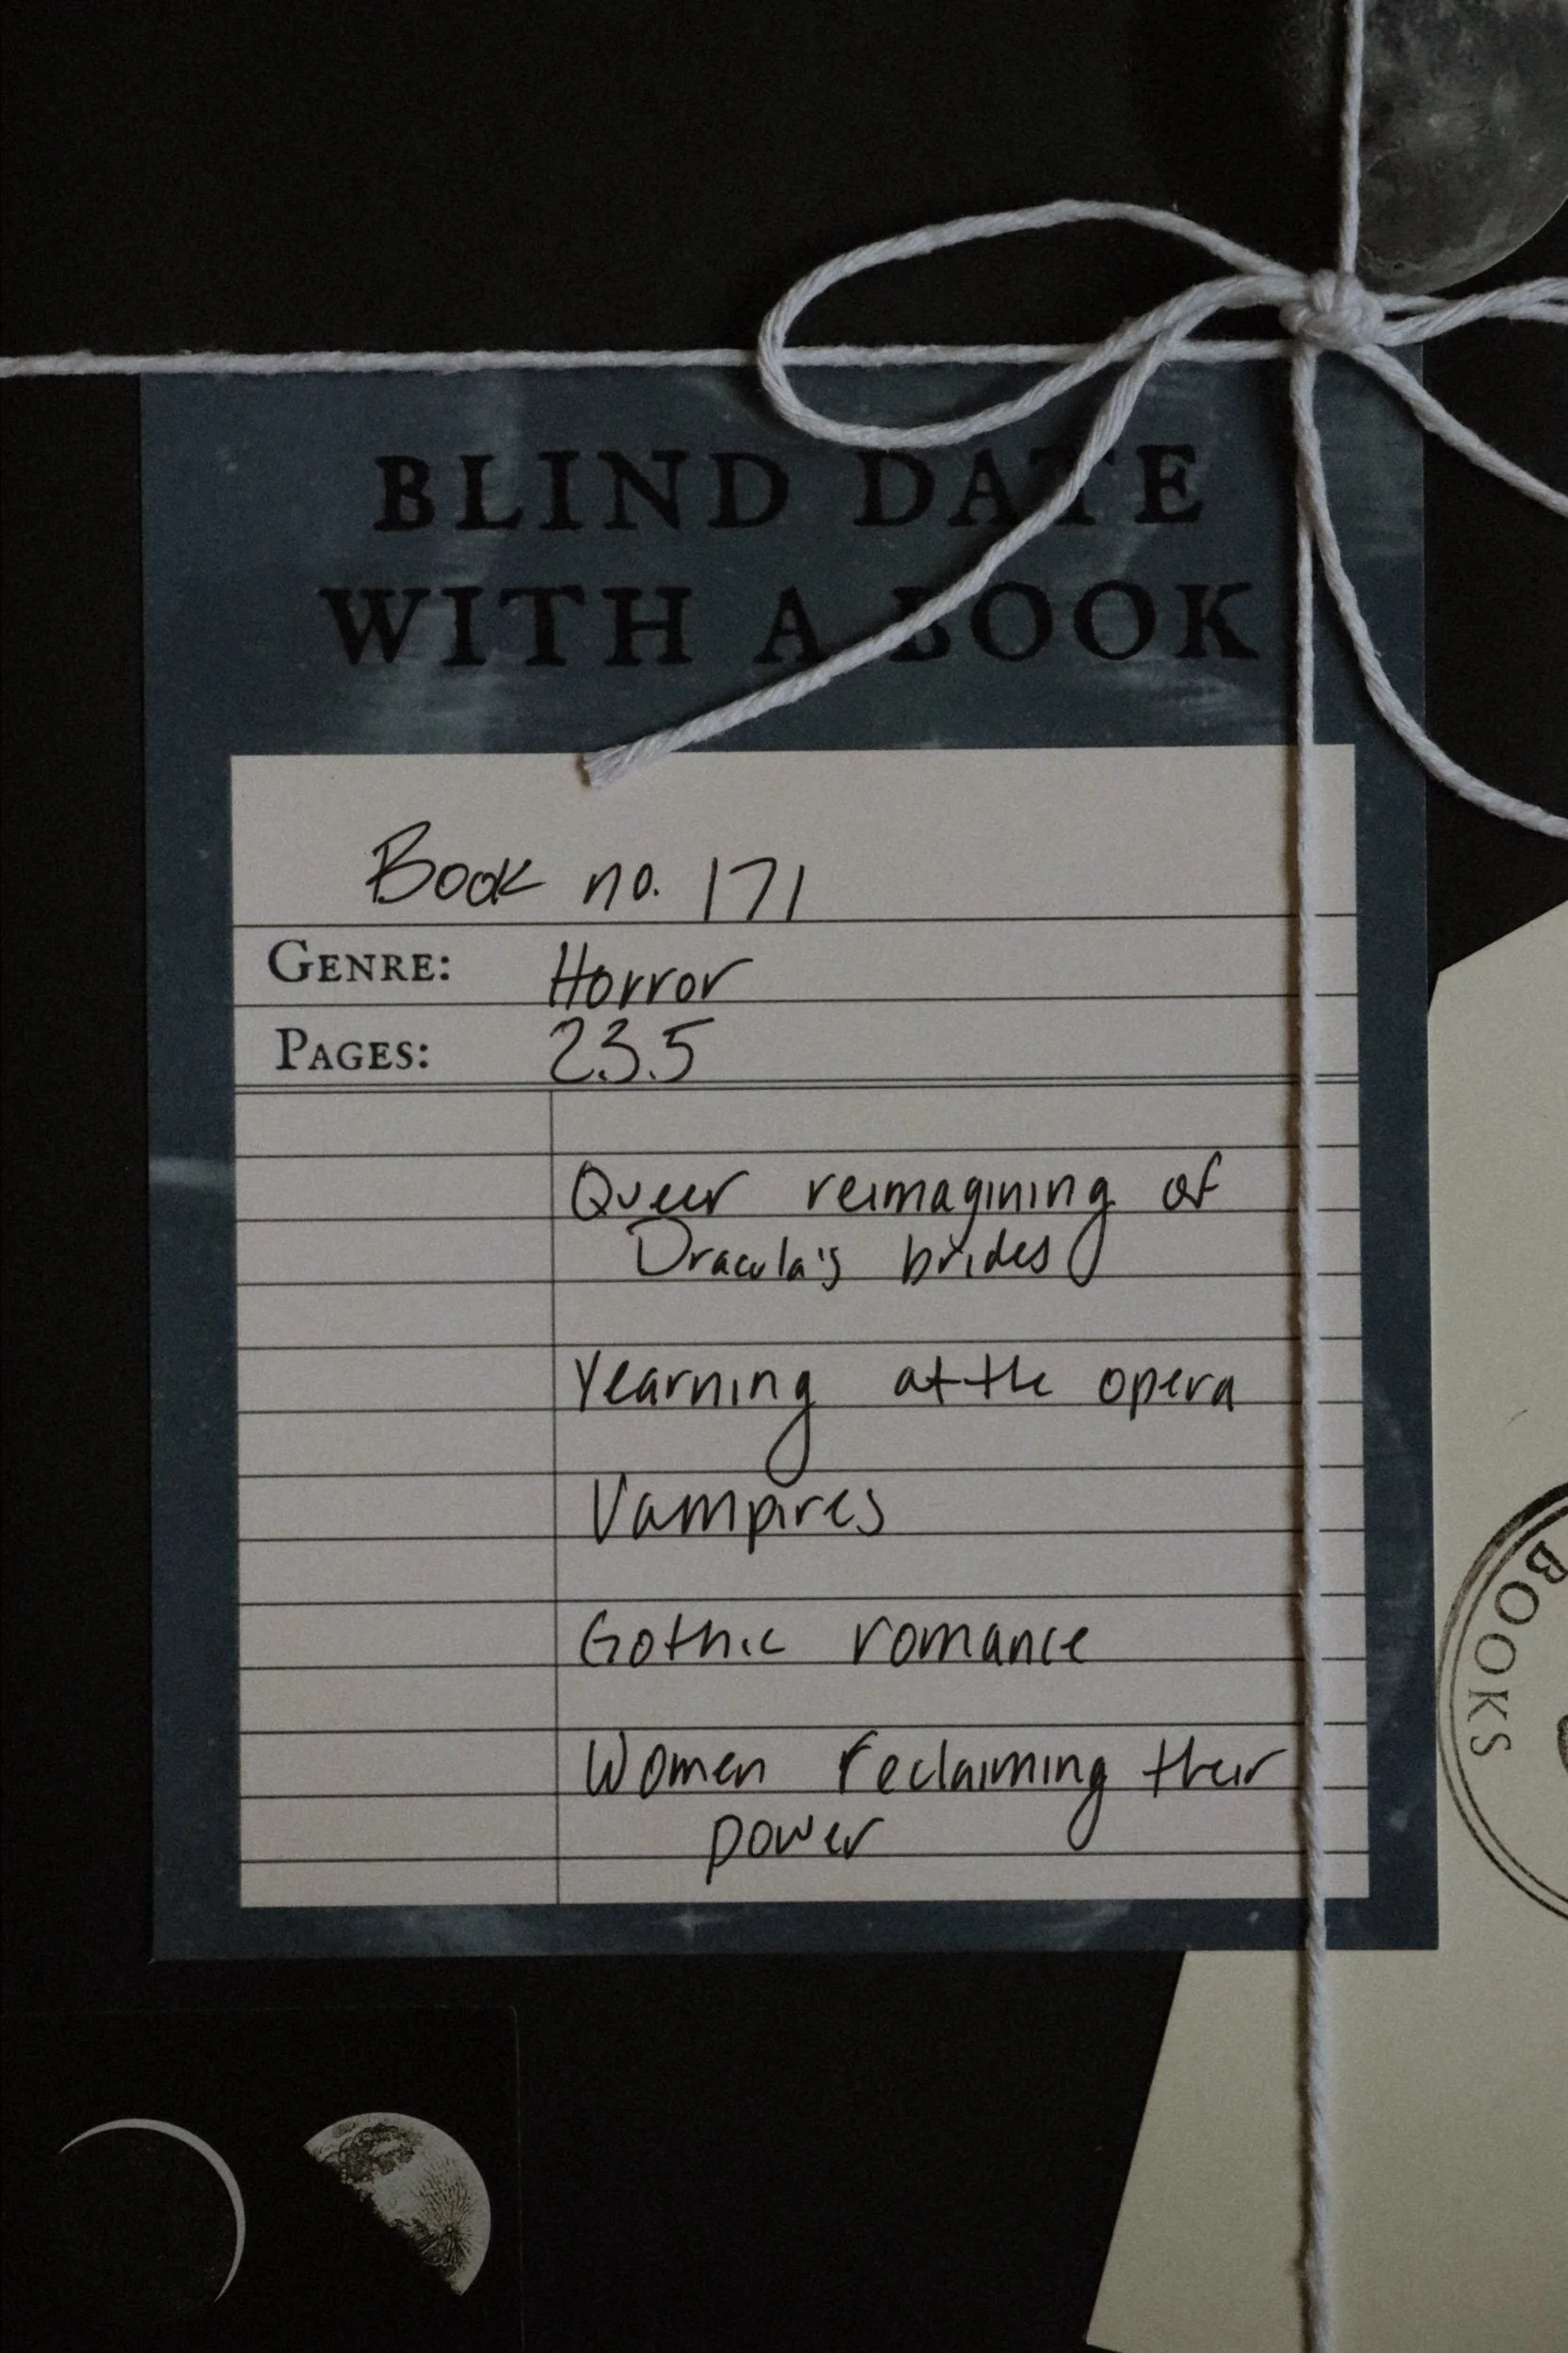 BLIND DATE
WITH A BOOK
Book no. 171
GENRE: Horror
PAGES: 235
Queer reimagining of
Dracula's brides
Yearning at the opera
Vampires
Gothic romance
Women reclaiming their
power
BOOKS